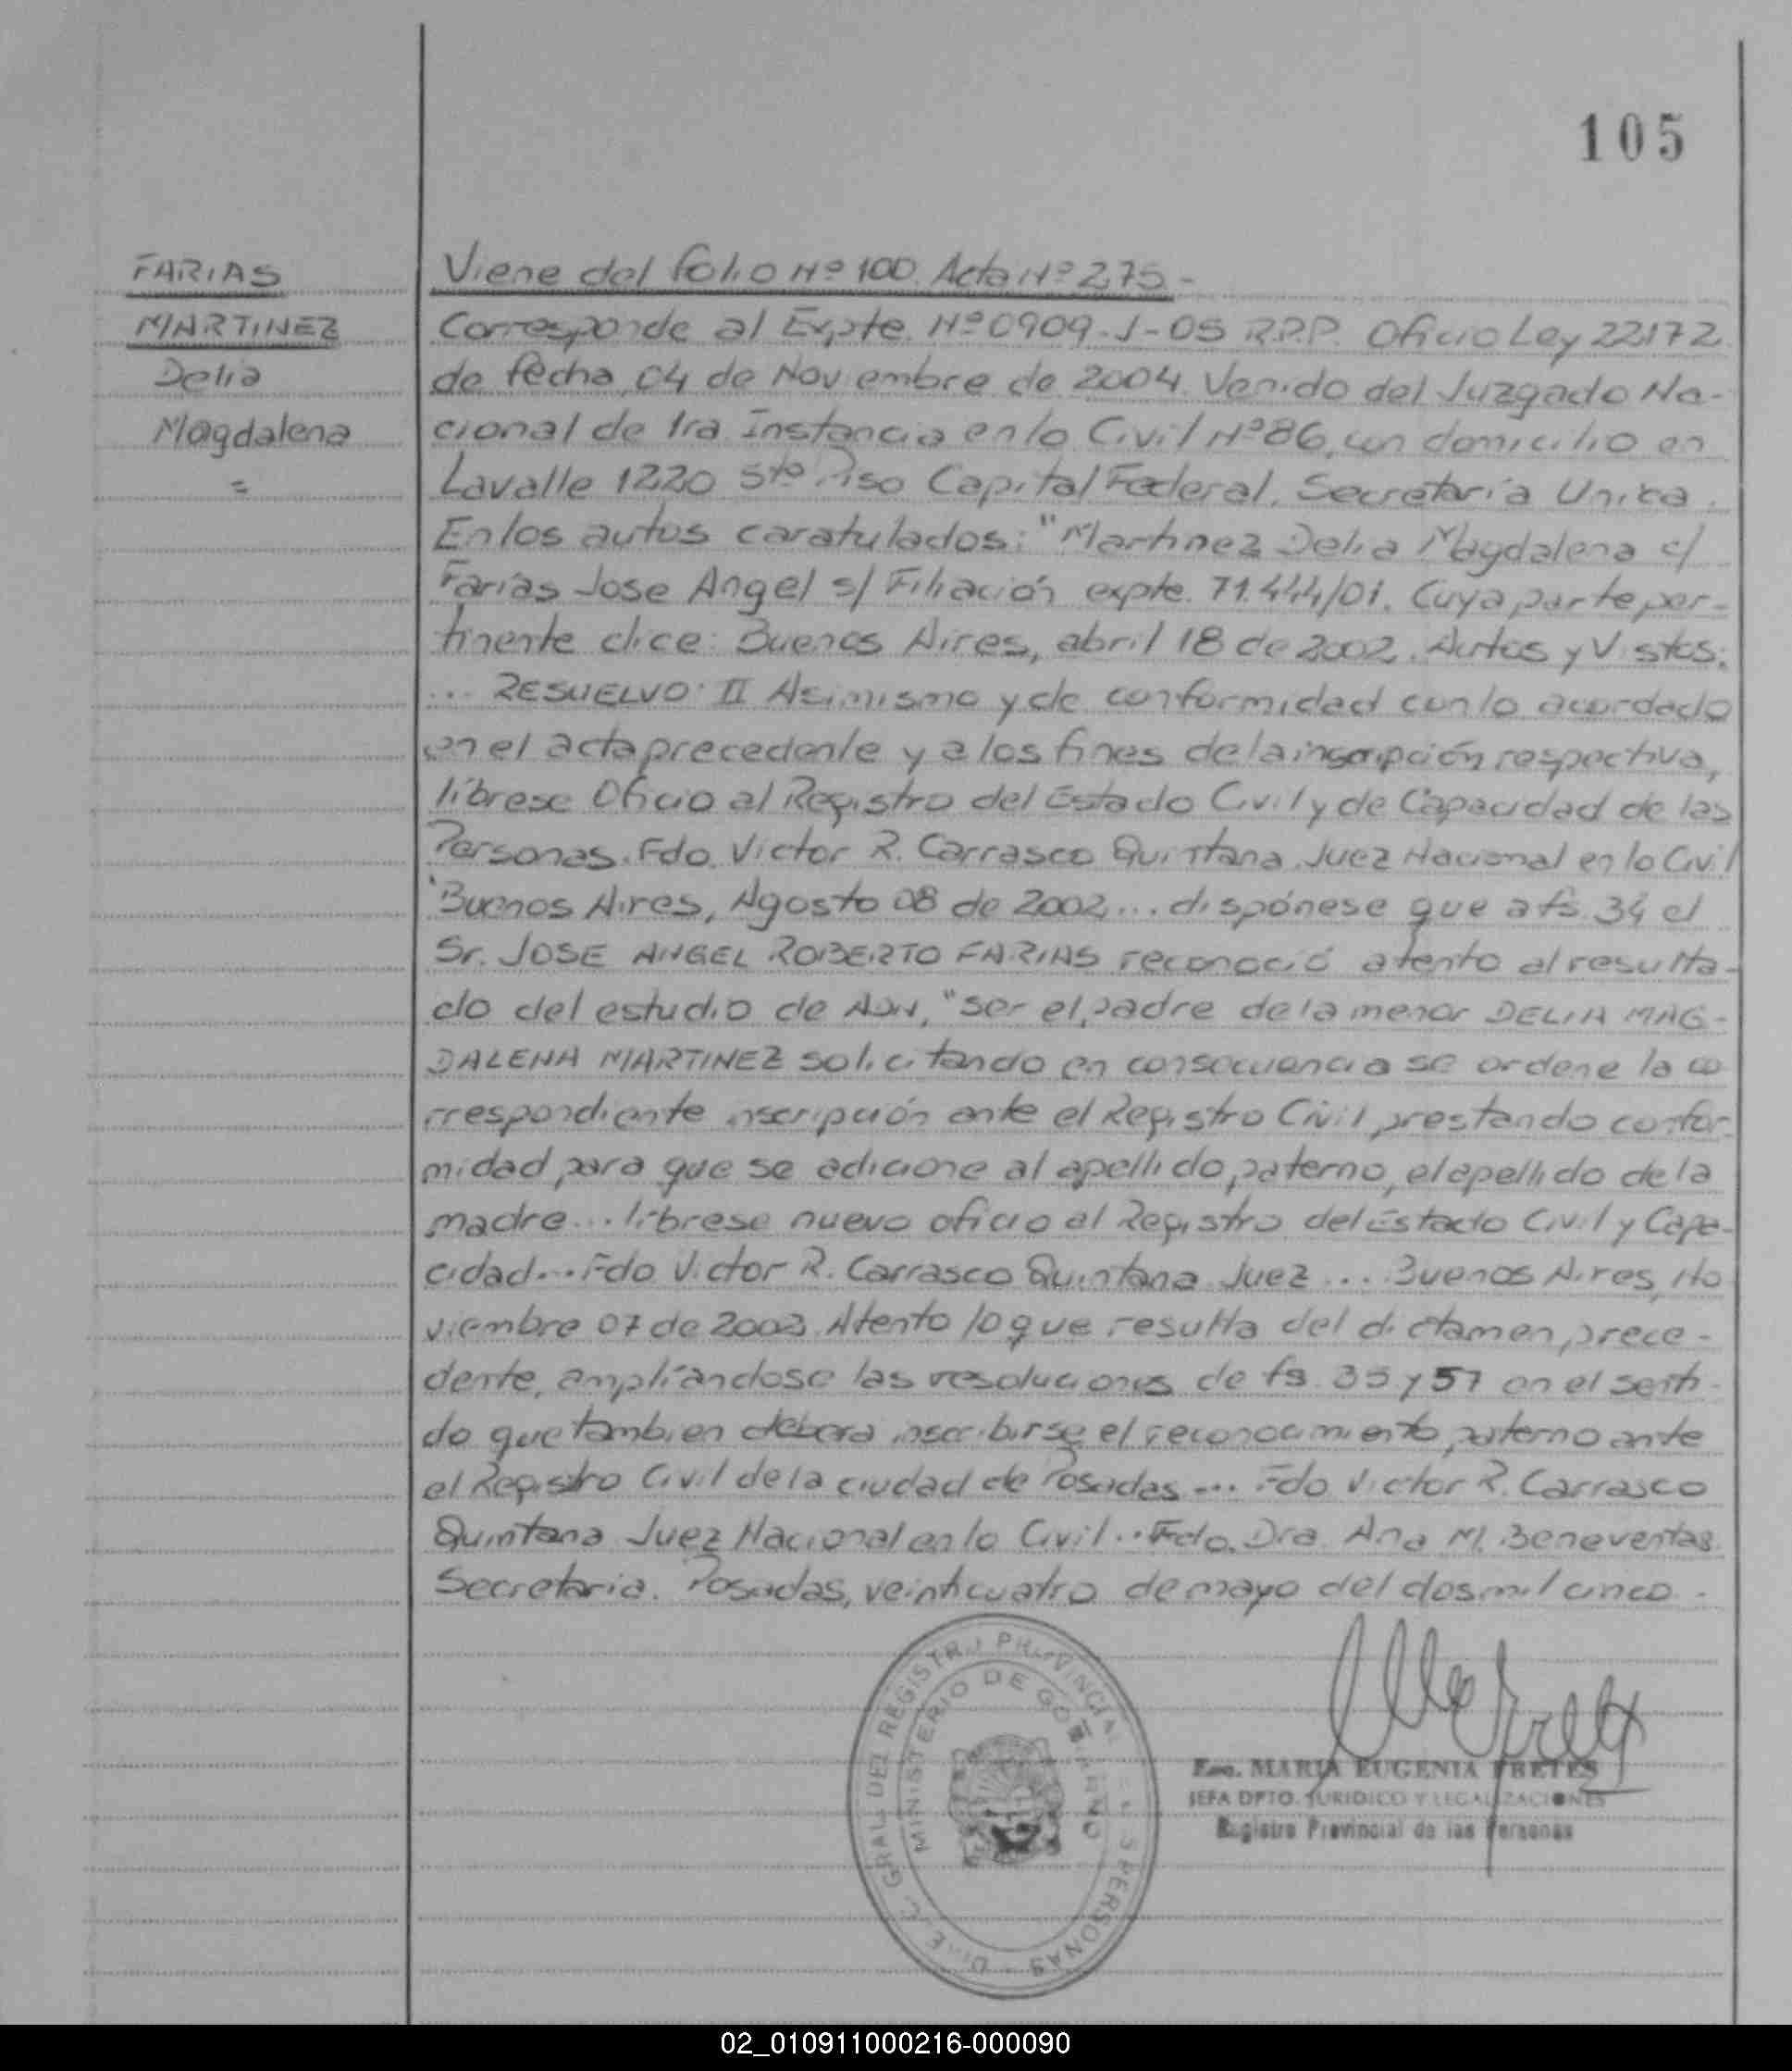 105
FARIAS
MARTINEZ
Delia
Magdalena
=
Viene del folio Nº 100. Acta Nº 275.-
Corresponde al Expte. Nº 0909-J-05 R.P.P. Oficio Ley 22172
de fecha, 04 de Noviembre de 2004. Venido del Juzgado Na-
cional de 1ra Instancia en lo Civil Nº 86, con domicilio en
Lavalle 1220 5to Piso Capital Federal. Secretaría Unica.
En los autos caratulados: "Martinez Delia Magdalena c/
Farías Jose Angel s/ Filiación expte. 71.444/01. Cuya parte per-
tinente dice: Buenos Aires, abril 18 de 2002. Autos y Vistos:
... RESUELVO: II Asimismo y de conformidad con lo acordado
en el acta precedente y a los fines de la inscripción respectiva,
líbrese Oficio al Registro del Estado Civil y de Capacidad de las
Personas. Fdo. Victor R. Carrasco Quintana Juez Nacional en lo Civil
"Buenos Aires, Agosto 08 de 2002... dispónese que a fs. 34 el
Sr. JOSE ANGEL ROBERTO FARIAS reconoció atento al resulta-
do del estudio de ADN, "ser el padre de la menor DELIA MAG-
DALENA MARTINEZ solicitando en consecuencia se ordene la co
rrespondiente inscripción ante el Registro Civil prestando confor-
midad para que se adicione al apellido paterno, el apellido de la
madre... líbrese nuevo oficio al Registro del Estado Civil y Capa-
cidad... Fdo Victor R. Carrasco Quintana Juez ... Buenos Aires, No
viembre 07 de 2002. Atento lo que resulta del dictamen prece-
dente, ampliándose las resoluciones de fs. 35 y 57 en el senti-
do que tambien debera inscribirse el reconocimiento paterno ante
el Registro Civil de la ciudad de Posadas... Fdo Victor R. Carrasco
Quintana Juez Nacional en lo Civil... Fdo. Dra. Ana M. Beneventas
Secretaria. Posadas, veinticuatro de mayo del dos mil cinco.-
DIREC. GRAL. DEL REGISTRO PROVINCIAL DE LAS PERSONAS
MINISTERIO DE GOBIERNO
Esc. MARIA EUGENIA FRETES
JEFA DPTO. JURIDICO Y LEGALIZACIONES
Registro Provincial de las Personas
02_010911000216-000090